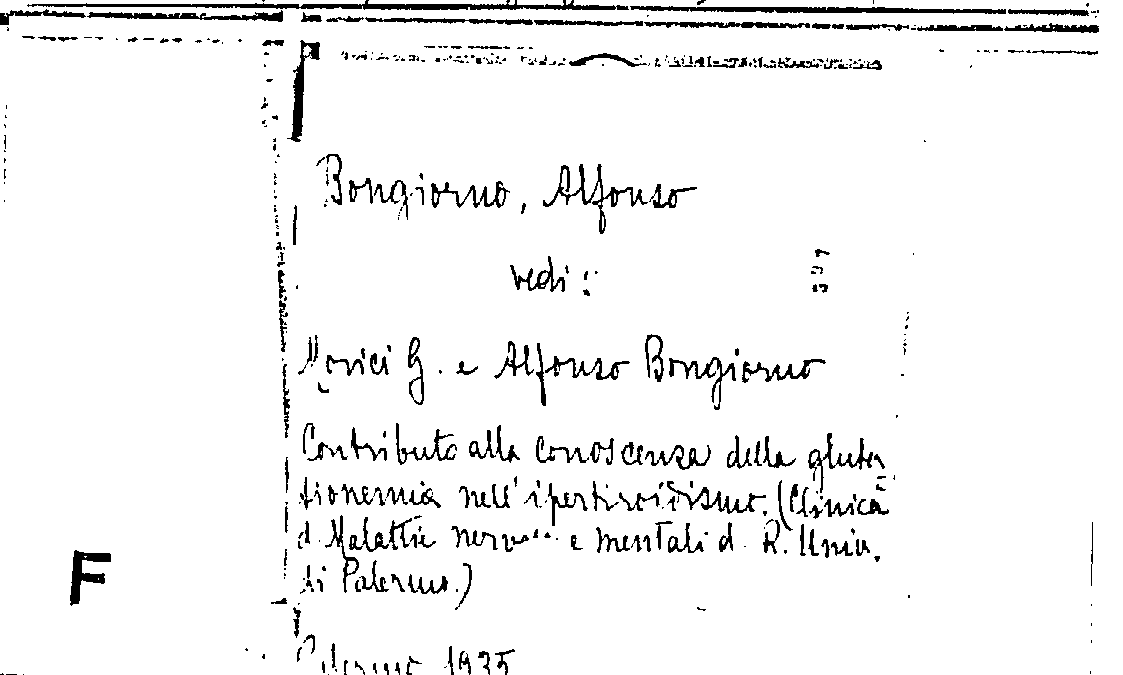 Bongiorno, Alfonso
vedi:
Morici G. e Alfonso Bongiorno
Contributo alla conoscenza della gluta-
tionemia nell'ipertiroidismo. (Clinica
d. Malattie e mentali d. R. Univ.
di Palermo.)
F
Palermo 1935